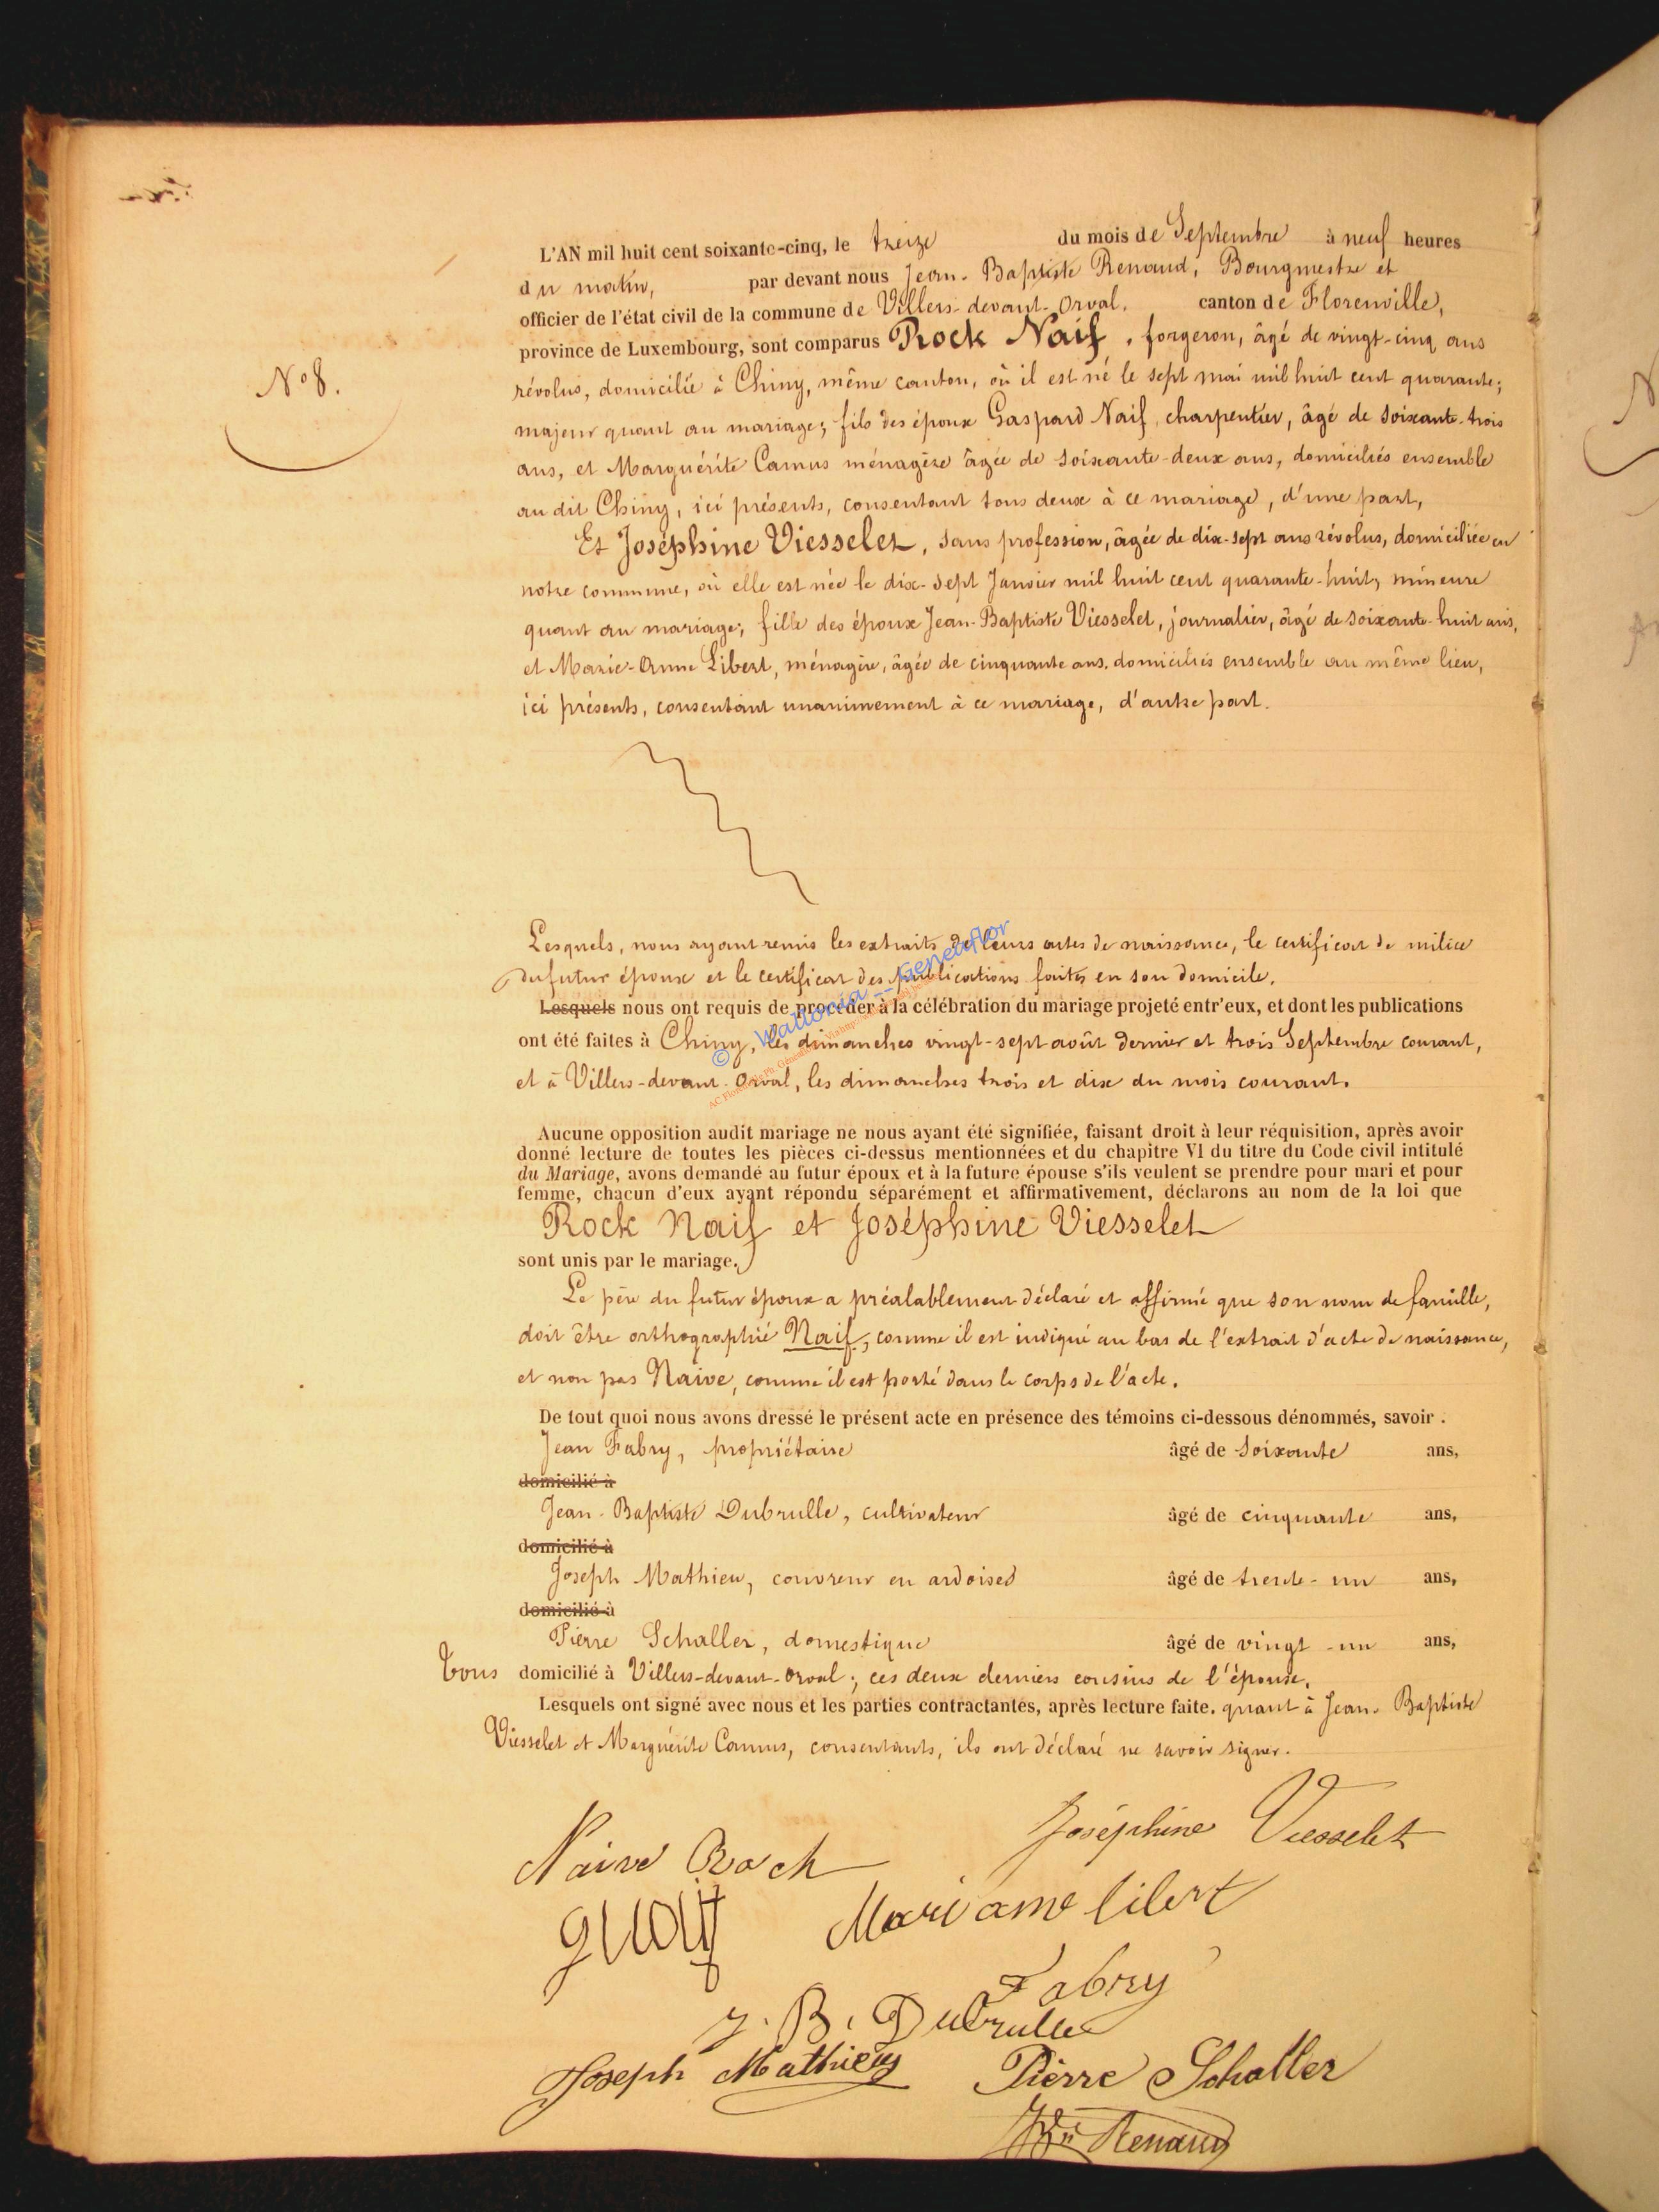 L'AN mil huit cent soixante-cinq, le treize du mois de Septembre à neuf heures
du matin, par devant nous Jean-Baptiste Renaud, Bourgmestre et
officier de l'état civil de la commune de Villers-devant-Orval, canton de Florenville,
province de Luxembourg, sont comparus Rock Naif, forgeron, âgé de vingt-cinq ans
N° 8.
révolus, domiciliée à Chiny, même canton, où il est né le sept mai mil huit cent quarante;
majeur quant au mariage; fils des époux Gaspard Naif, charpentier, âgé de soixante-trois
ans, et Marguérite Camus ménagère âgée de soixante-deux ans, domiciliés ensemble
au dit Chiny, ici présents, consentant tous deux à ce mariage, d'une part,
Et Joséphine Viesselet, sans profession, âgée de dix-sept ans révolus, domiciliée en
notre commune, où elle est née le dix-sept Janvier mil huit cent quarante-huit, mineure
quant au mariage; fille des époux Jean-Baptiste Viesselet, journalier, âgé de soixante-huit ans,
et Marie-Anne Libert, ménagère, âgée de cinquante ans, domiciliés ensemble au même lieu,
ici présents, consentant unanimement à ce mariage, d'autre part.
Lesquels, nous ayant remis les extraits de leurs actes de naissance, le certificat de milice
du futur époux et le certificat des publications faites en son domicile.
Lesquels nous ont requis de procéder à la célébration du mariage projeté entr'eux, et dont les publications
ont été faites à Chiny, les dimanches vingt-sept août dernier et trois Septembre courant,
et à Villers-devant-Orval, les dimanches trois et dix du mois courant.
© Wallonia -- Geneaflor
Aucune opposition audit mariage ne nous ayant été signifiée, faisant droit à leur réquisition, après avoir
donné lecture de toutes les pièces ci-dessus mentionnées et du chapitre VI du titre du Code civil intitulé
du Mariage, avons demandé au futur époux et à la future épouse s'ils veulent se prendre pour mari et pour
femme, chacun d'eux ayant répondu séparément et affirmativement, déclarons au nom de la loi que
Rock Naif et Joséphine Viesselet
sont unis par le mariage.
Le père du futur époux a préalablement déclaré et affirmé que son nom de famille,
doit être orthographié Naif, comme il est indiqué au bas de l'extrait d'acte de naissance,
et non pas Naive, comme il est porté dans le corps de l'acte.
De tout quoi nous avons dressé le présent acte en présence des témoins ci-dessous dénommés, savoir.
Jean Fabry, propriétaire âgé de soixante ans,
domicilié à
Jean-Baptiste Dubrulle, cultivateur âgé de cinquante ans,
domicilié à
Joseph Mathieu, couvreur en ardoises âgé de trente-un ans,
domicilié à
Pierre Schaller, domestique âgé de vingt-un ans,
Tous domicilié à Villers-devant-Orval; ces deux derniers cousins de l'épouse.
Lesquels ont signé avec nous et les parties contractantes, après lecture faite. quant à Jean-Baptiste
Viesselet et Marguérite Camus, consentants, ils ont déclaré ne savoir signer.
Joséphine Viesselet
Naive Roch
Mari anne libert
Fabry
J. B. Dubrulle
Joseph Mathieu Pierre Schaller
Renaud